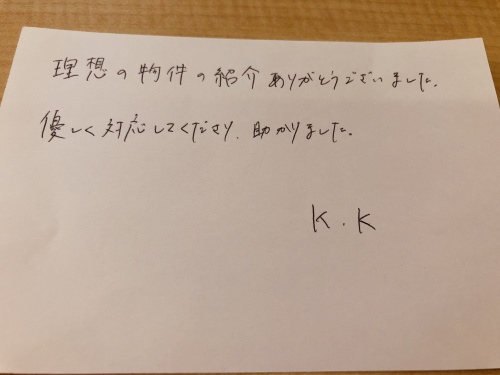 理想の物件の紹介ありがとうございました。
優しく対応してくださり、助かりました。
K.K